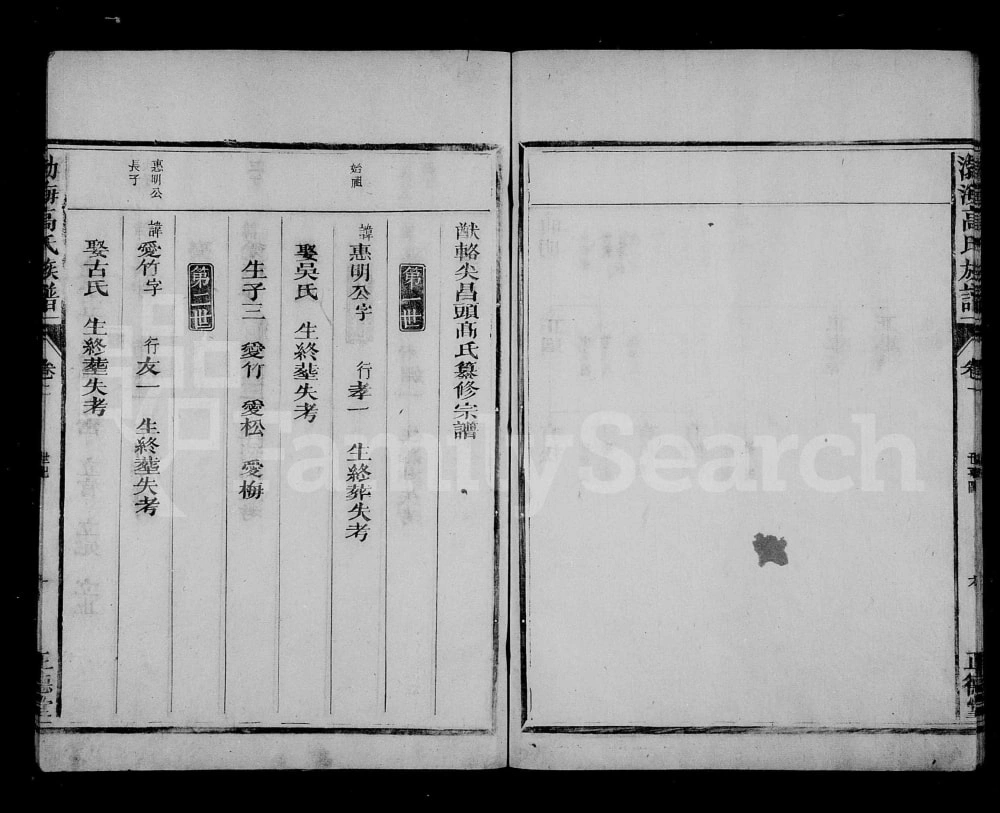 渤海高氏族譜
卷一
世系圖
六
正德堂
猷輅尖昌頭高氏纂修宗譜
第一世
始祖
諱惠明公字　行孝一　生終葬失考
娶吳氏　生終塟失考
生子三　愛竹　愛松　愛梅
第二世
惠明公長子
諱愛竹字　行友一　生終塟失考
娶古氏　生終塟失考
渤海高氏族譜
卷一
正德堂
FamilySearch